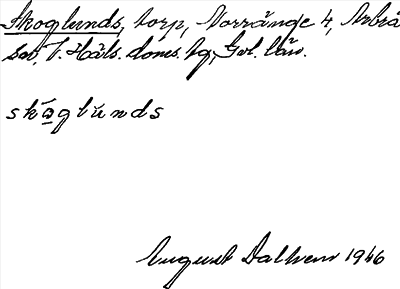 Skoglunds, torp, Norränge 4, Arbrå
sn, V. Häls. doms. tg, Gvl. län.
skǫglunds
August Dalhem 1946